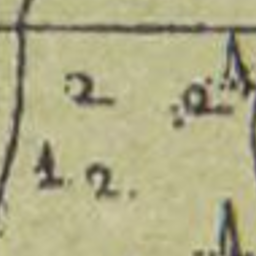 2 .2
1. 2.